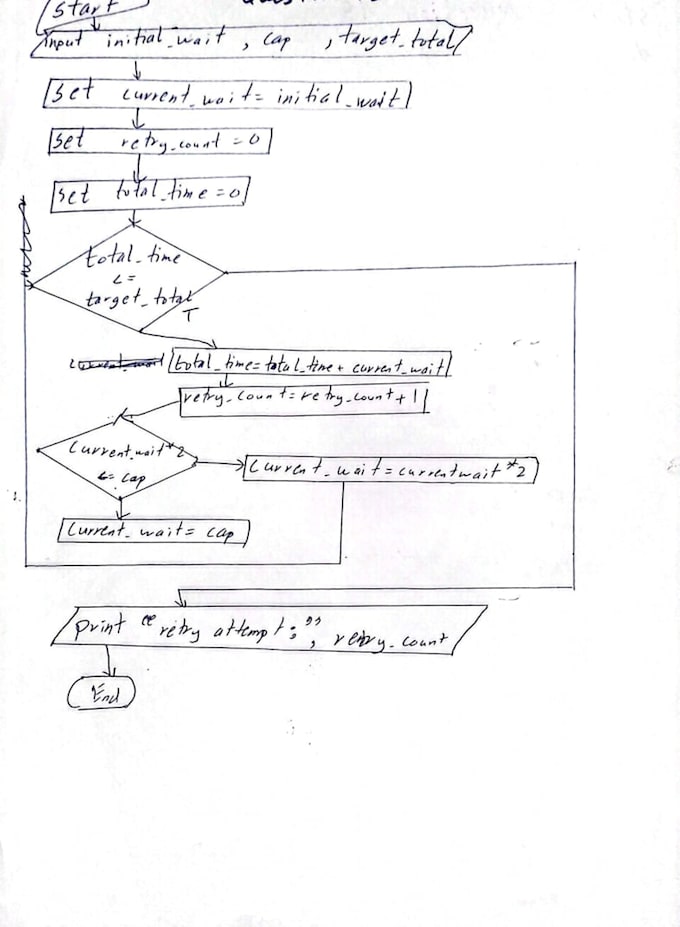 Start
input initial_wait , cap , target_total
Set current_wait = initial_wait
set retry_count = 0
set total_time = 0
total_time
<=
target_total
T
total_time = total_time + current_wait
retry_count = retry_count + 1
Current_wait * 2
<= cap
Current_wait = currentwait * 2
Current_wait = cap
print "retry attempt:", retry_count
End